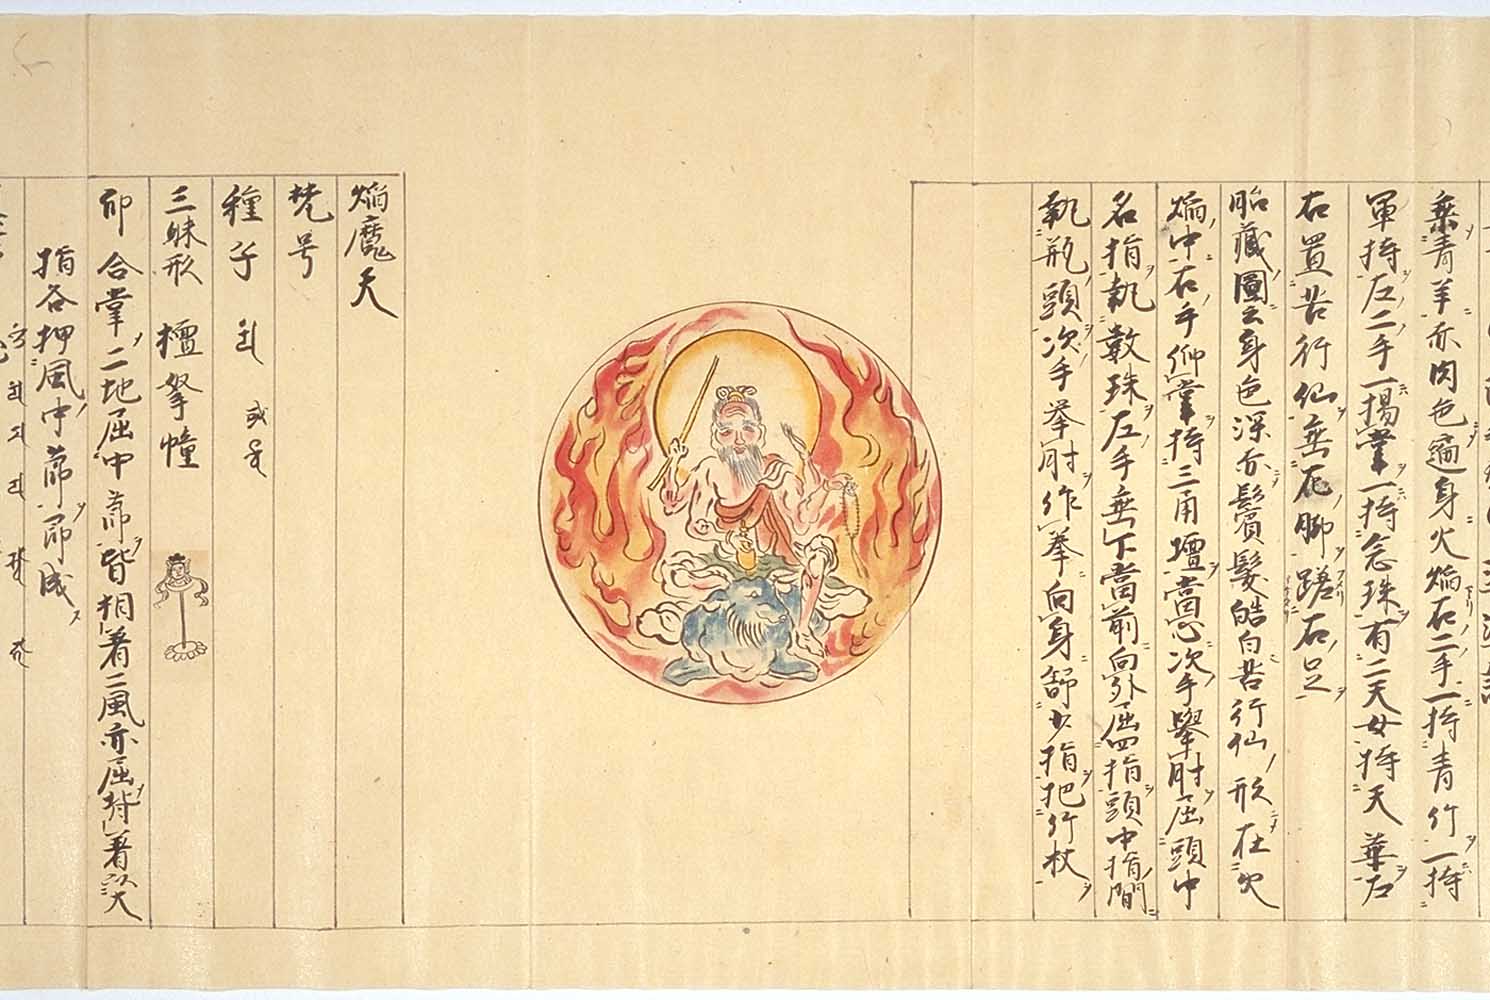 乗青羊亦肉色遍身火焔右二手一持青竹一持
軍持左二手一揚掌一持念珠有二天女持天華左
右置苦行仙垂左脚蹉右足
胎蔵圖云身色深赤鬢髪皓白苦行仙形在火
焔中右手仰掌持三角壇當心次手擧肘屈頭中
名指執數珠左手垂下當前向外屈四指頭中指間
執瓶頭次手举肘作拳向身舒少指把竹杖
焔魔天
梵号
種子 或
三昧形 檀拏幢
印 合掌二地屈中節皆相着二風亦屈背着以大
指各押風中節即成